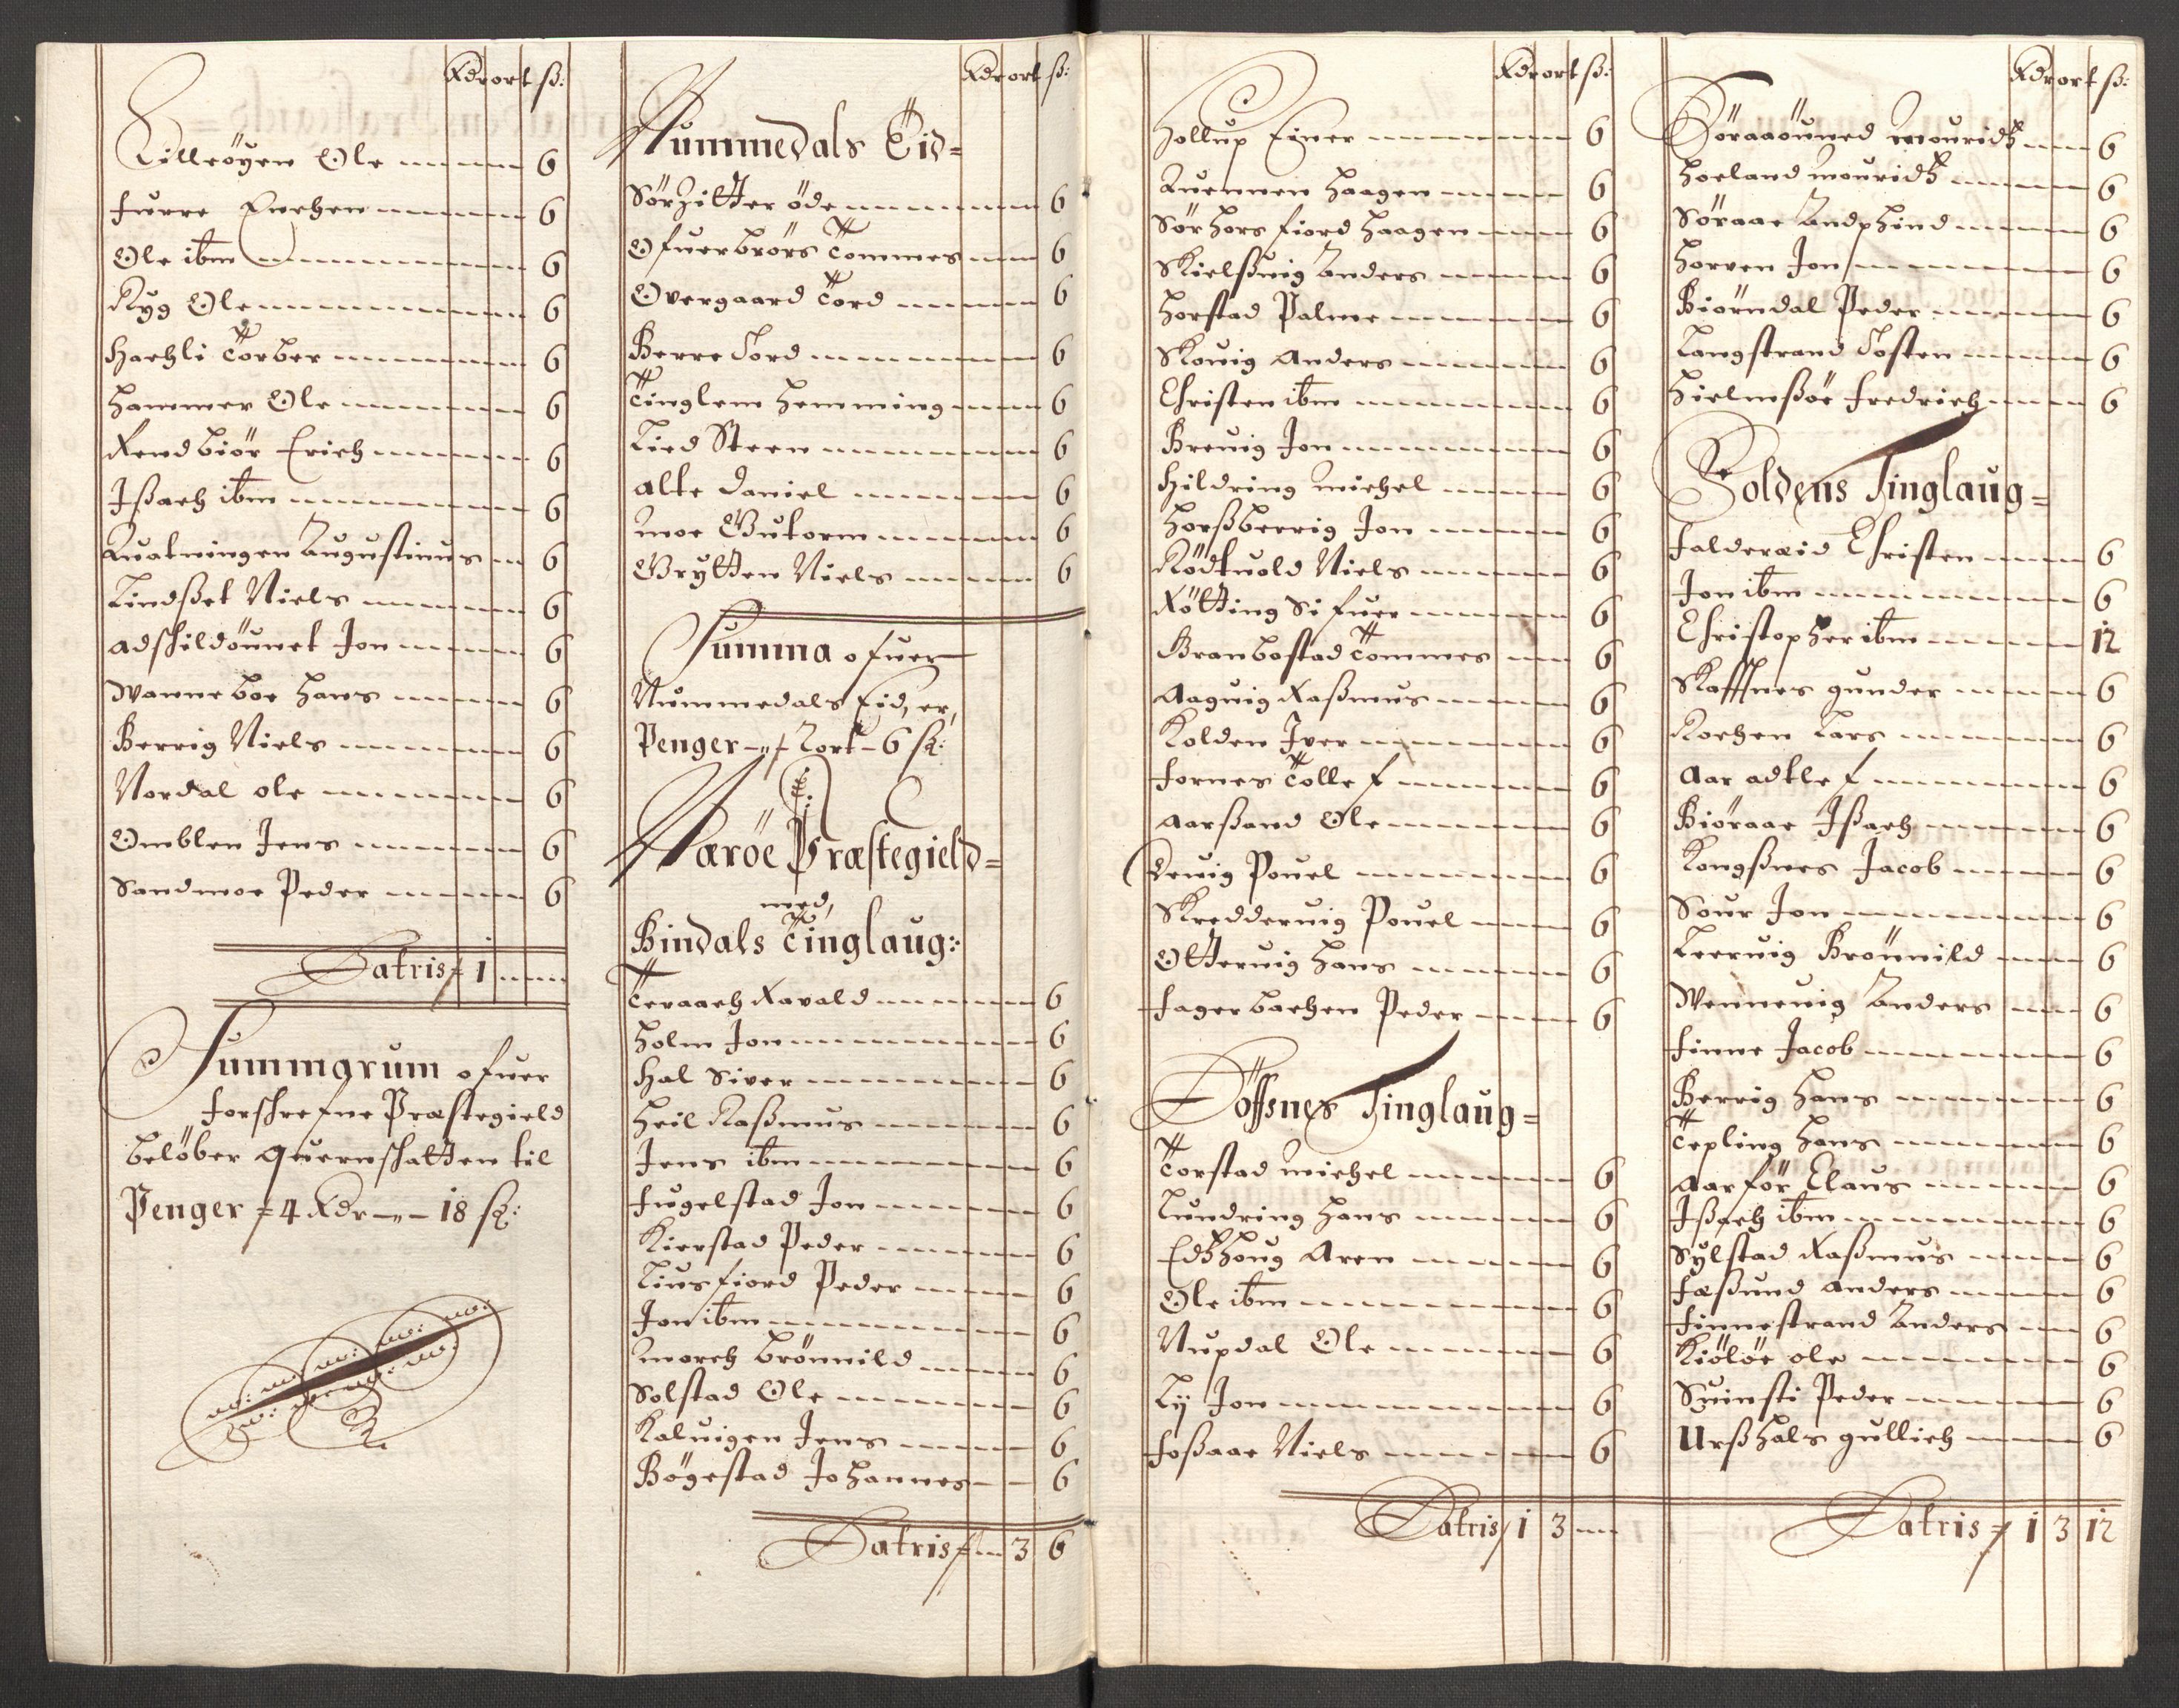 Rdr ort ß:
Lilleöyen Ole 6
furre Enchen 6
Ole ibm 6
Ryg Ole 6
Hachli Torber 6
Hammer Ole 6
Rendbiör Erich 6
Jßach ibm 6
Quatningen Augustinus 6
Lindset Niels 6
adskildöunet Jon 6
Wanneboe Hans 6
Berrig Niels 6
Nordal ole 6
Omblen Jens 6
Sandmoe Peder 6
Latris 1
Summarum ofuer
forschrefne Præstegield
belöber Quernskatten til
Penger 4 Rdr - 18 sk:
Rdr ort ß:
Nummedals Eid
Sörzitter öde 6
Ofuerbrörs Tommes 6
Overgaard Tord 6
Berre Tord 6
Tinglem Hemming 6
Lied Steen 6
Alte Daniel 6
moe Gutorm 6
Grytten Niels 6
Summa ofuer
Nummedals Eid, er,
Penger - 2 ort - 6 sk:
Næröe Præstegield
med,
Bindals Tinglaug:
Teraach Ravald 6
Holm Jon 6
Hal Siver 6
Heil Raßmus 6
Jens ibm 6
fugelstad Jon 6
Kierstad Peder 6
Liusfiord Peder 6
Jon ibm 6
morch brönnild 6
Solstad Ole 6
Kalvigen Jens 6
Bögestad Johannes 6
Latris 3 6
Rdr ort ß:
Hollup Einer 6
Quennen Haagen 6
Sörhorsfiord Haagen 6
Skielßvig Anders 6
Horstad Palme 6
Skovig Anders 6
Christen ibm 6
Brevig Jon 6
Hildring michel 6
Horßberrig Jon 6
Rödtvold Niels 6
Rötting Sifuer 6
Branbostad Tommes 6
Aagvig Raßmus 6
Kolden Iver 6
fornes Tollef 6
Aarßand Ole 6
Devig Povel 6
Skreddervig Povel 6
Ottervig Hans 6
fagerbachen Peder 6
Föffsnes Tinglaug
Torstad michel 6
Lundring Hans 6
Edßhoug Aren 6
Ole ibm 6
Nupdal Ole 6
Ly Jon 6
foßaae Niels 6
Latris 1 3
Rdr ort ß:
Söraaöuned mouridß 6
Hoeland mouridß 6
Söraae Andphind 6
Horven Jon 6
Biörndal Peder 6
Langstrand Tosten 6
Hielmßöe fredrich 6
Foldens Tinglaug
falderæid Christen 6
Jon ibm 6
Christopher ibm 12
Skaffnes gunder 6
Rochen Lars 6
Aar adtlef 6
Biöraae Jßach 6
Kongßnes Jacob 6
Sour Jon 6
Leervig Brönnild 6
Wennevig Anders 6
finne Jacob 6
Berrig Hans 6
Tepling Hans 6
Aarför Claus 6
Jßach ibm 6
Sylstad Raßmus 6
foßund anders 6
finnestrand Anders 6
Kiölöe ole 6
Svinsti Peder 6
Urßhals gullich 6
Latris 1 3 12